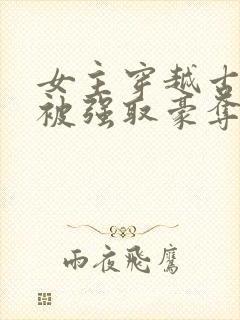 女主穿越古
被强取豪夺
雨夜飛鷹